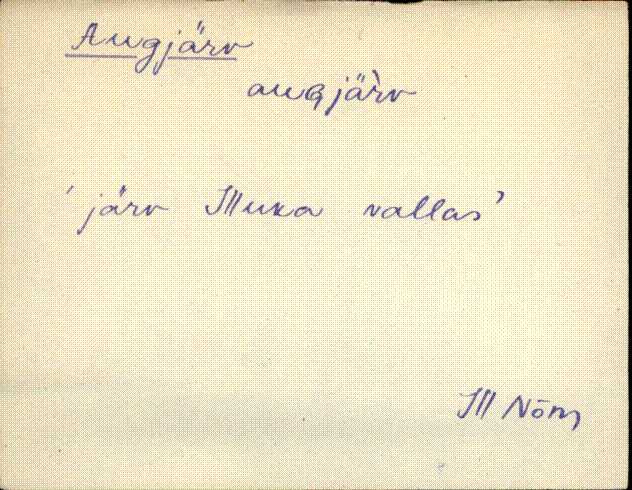 Augjärv
auɢjäˋrv
'järv Illuka vallas'
Ill Nõm